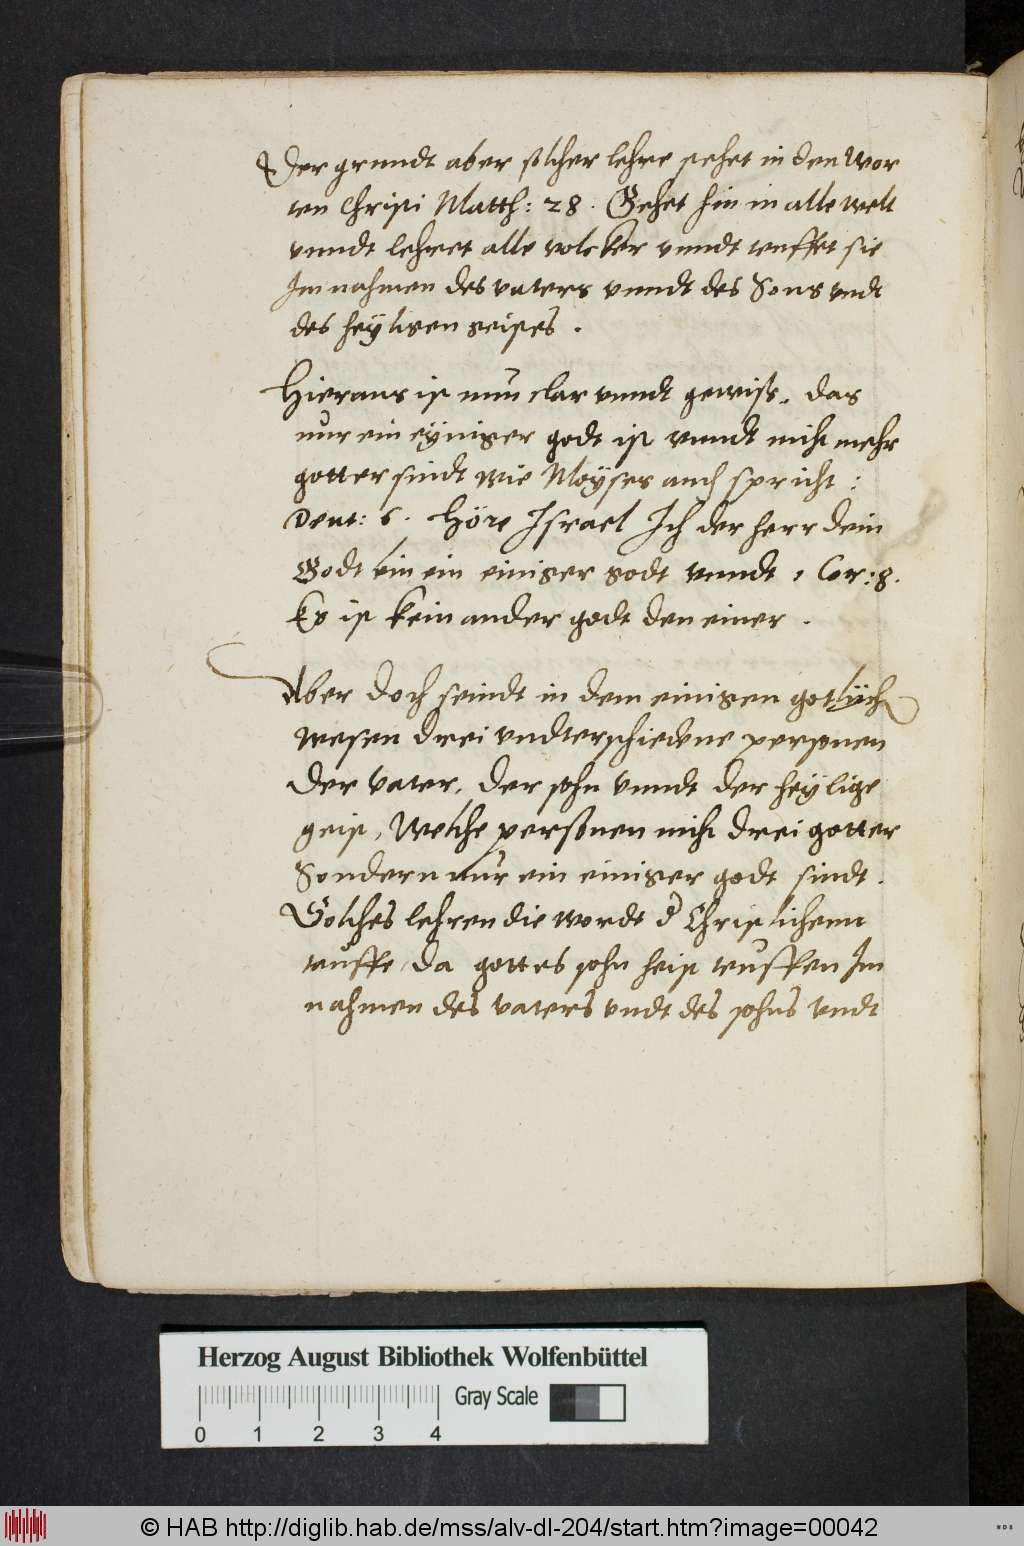 Der grundt aber solcher lehre stehet in den wor
ten Christi Matth: 28. Gehet hin in alle welt
unndt lehret alle volcker unndt teuffet sie
Im nahmen des vaters unndt des Sons undt
des heyligen geistes.
Hieraus ist nun clar unndt gewiss, das
nur ein eyniger godt ist unndt nicht mehr
gotter sindt wie Moÿses auch spricht:
Deut: 6. Höre Israel Ich der herr dein
Godt bin ein einiger godt unndt 1 Cor: 8.
Es ist kein ander godt den einer.
Aber doch seindt in dem einigen gotlich
wesen drei undterschiedene personen
der vater, der sohn unndt der heylige
geist, welche personen nicht drei gotter
Sondern nur ein einiger godt sindt.
Solches lehren die wordt d Christlichenn
teuffe, da gottes sohn heist teuffen Im
nahmen des vaters undt des sohns undt
Herzog August Bibliothek Wolfenbüttel
Gray Scale
0 1 2 3 4
© HAB http://diglib.hab.de/mss/alv-dl-204/start.htm?image=00042